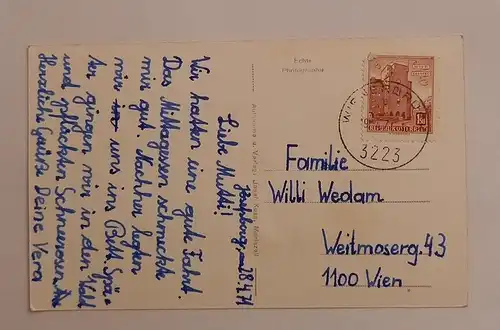 Echte
Photographie
1.50
REPUBLIK ÖSTERREICH
3223
Familie
Willi Wedam
Weitmoserg. 43
1100 Wien
28.4.71
Liebe Mutti!
Wir hatten eine gute Fahrt.
Das Mittagessen schmeckte
mir gut. Nachher legten
wir uns ins Bett. Spä-
ter gingen wir in den Wald
und pflückten Schneerosen.
Herzliche Grüße Deine Vera